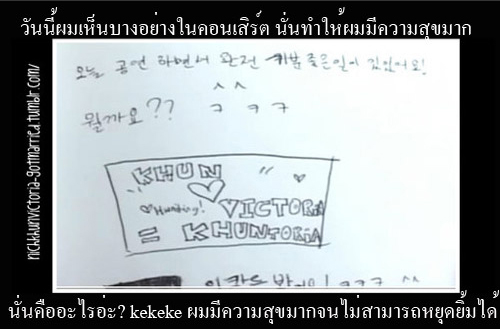 วันนี้ผมเห็นบางอย่างในคอนเสิร์ต นั่นทำให้ผมมีความสุขมาก
nichkhunvictoria-gotmarried.tumblr.com/
오늘 공연 하면서 완전 기분 좋은일이 있었어요!
^^
뭘까요?? ㅋ ㅋ ㅋ
KHUN
♡ Hunting! VICTORIA
= KHUNTORIA
ㅋㅋㅋ ^^
นั่นคืออะไรอ่ะ? kekeke ผมมีความสุขมากจนไม่สามารถหยุดยิ้มได้